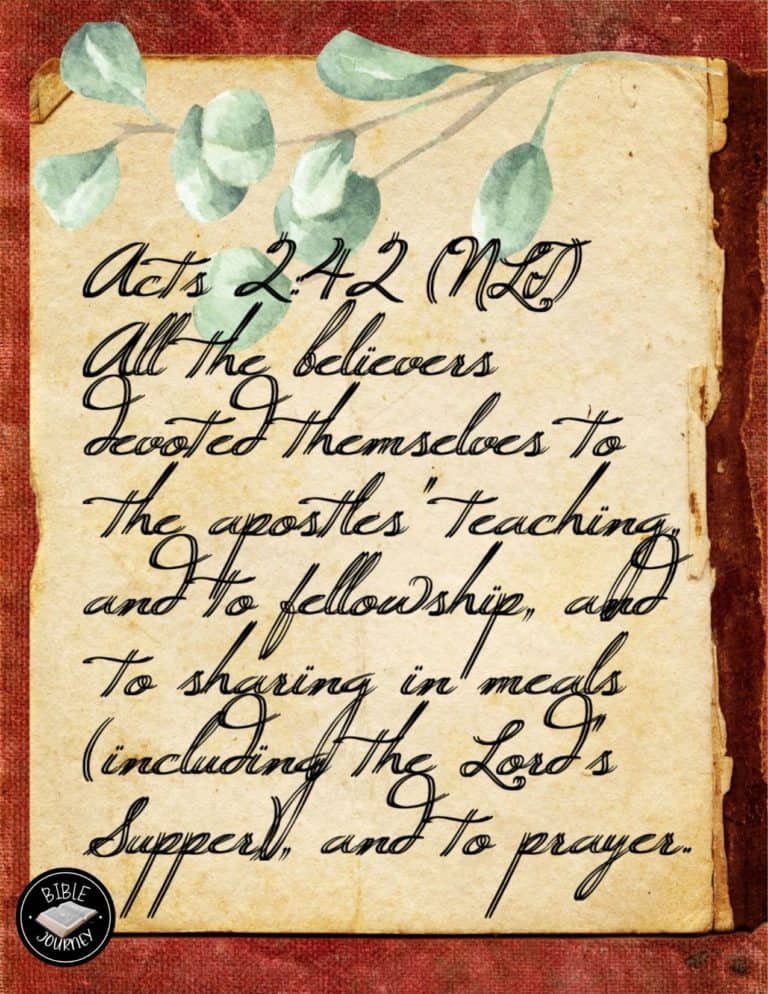 Acts 2:42 (NLT)
All the believers
devoted themselves to
the apostles' teaching,
and to fellowship, and
to sharing in meals
(including the Lord's
Supper), and to prayer.
BIBLE
JOURNEY